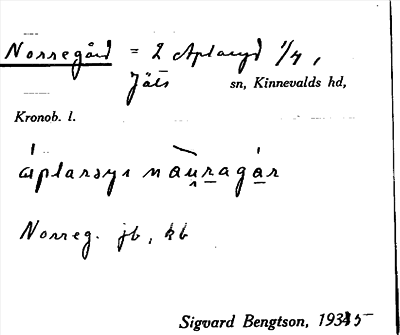 Norregård = 2 Aplaryd 1/4,
Jäts sn, Kinnevalds hd,
Kronob. l.
áplarsyr nàu̯ragár
Norreg. jb, kb
Sigvard Bengtson, 1935